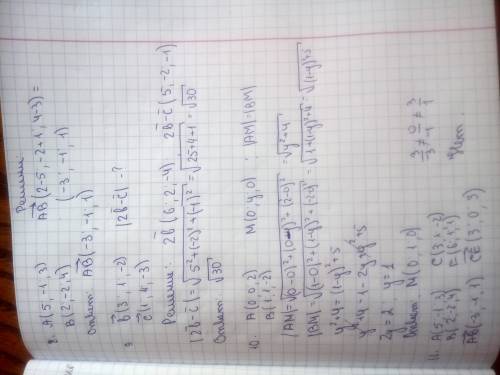 8. A(5,-1,3) Решение:
B(2,-2,4) AB(2-5,-2+1,4-3)=
(-3;-1;1)
Ответ: AB(-3;-1;1)
9. b(3;1;-2) |2b-c|-?
c(1,4,-3)
Решение: 2b(6;2;-4) 2b-c(5;-2;-1)
|2b-c|=√5²+(-2)²+(-1)²=√25+4+1=√30
Ответ √30
10. A(0;0;2) M(0;y;0) : |AM|=|BM|
B(1;1;-2)
|AM|=√(0-0)²+(0-y)²+(2-0)²=√y²+4
|BM|=√(1-0)²+(1-y)²+(-2-0)²=√1+(1-y)²+4=√(1-y)²+5
y²+4=(1-y)²+5
y²+4=1-2y+y²+5
2y=2 y=1
Ответ M(0;1;0)
11. A(5;-1;3) C(3;1;-2)
B(2;-2;4) E(6;1;1)
AB(-3;-1;1) CE(3;0;3) 3/-3≠0/-1≠3/1
Нет.